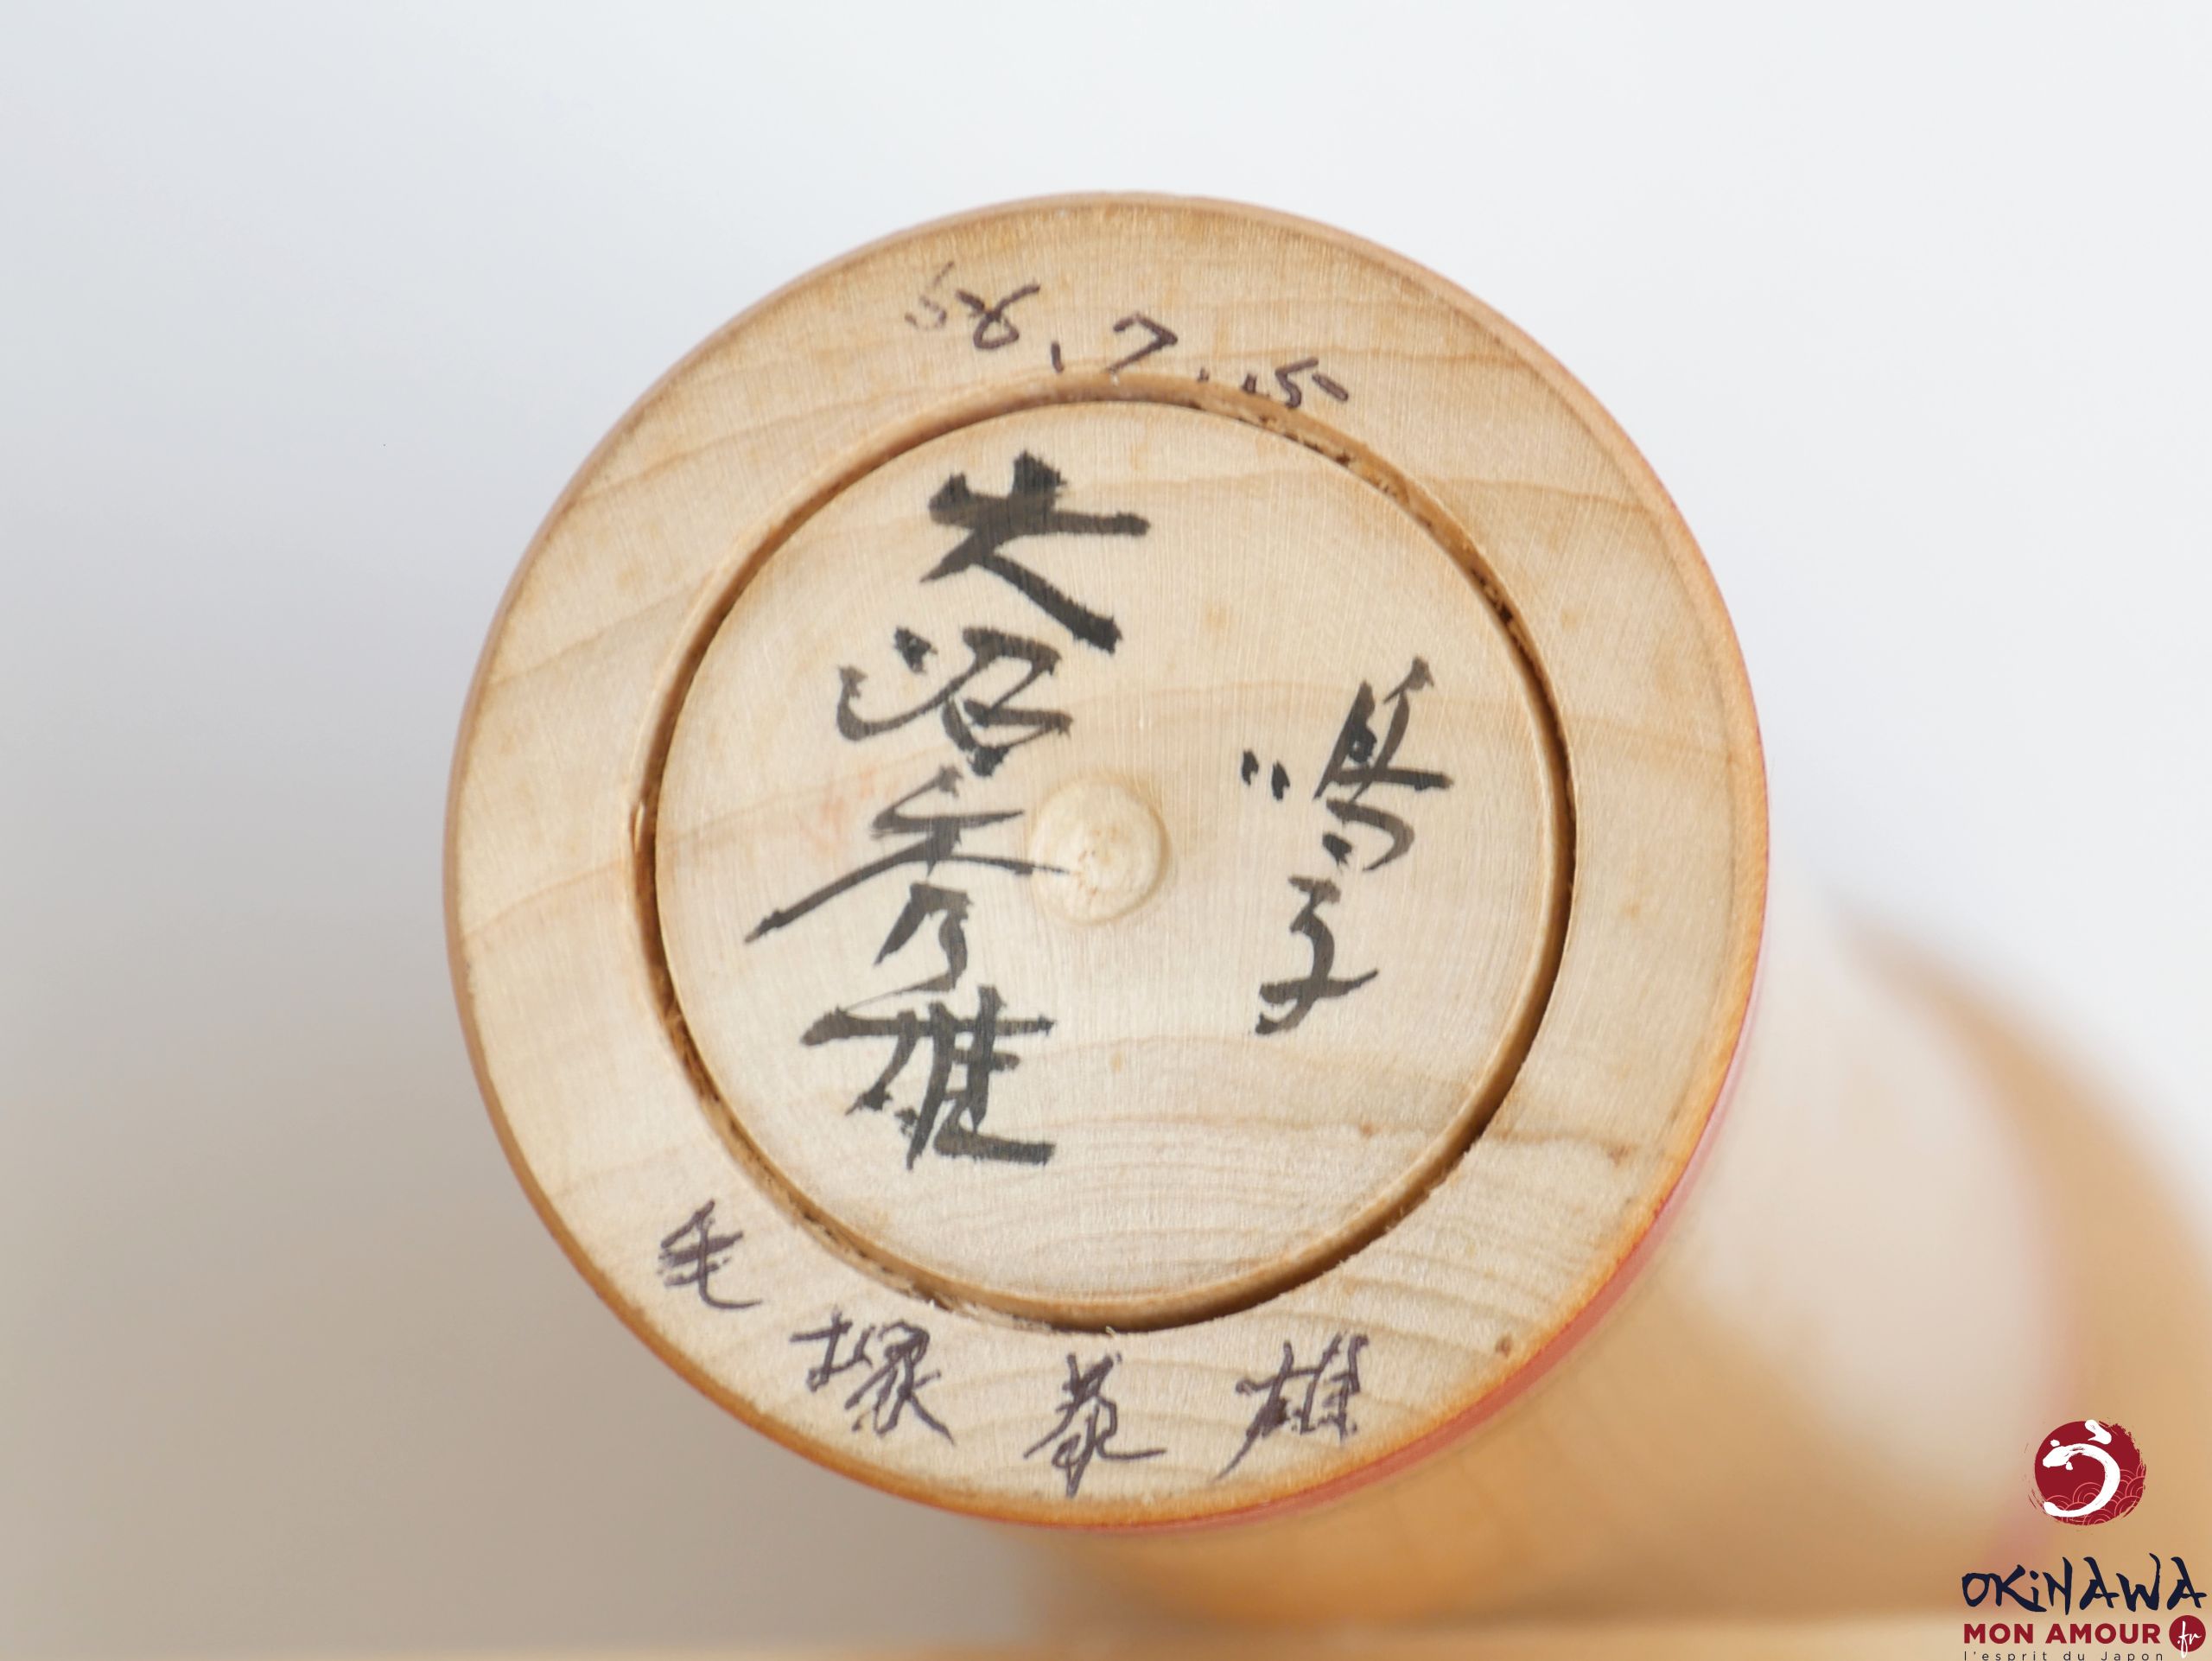 58.7.15
鳴子
大沼秀雄
毛塚泰雄
う
OKiNAWA
MON AMOUR .fr
l'esprit du Japon